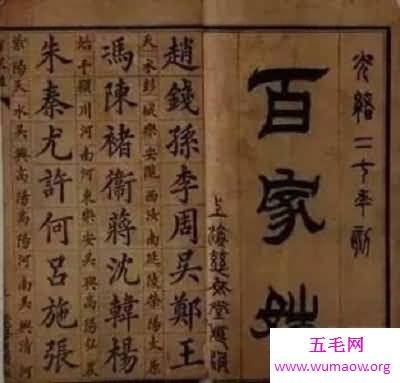 光緒二十年
百家姓
上海
趙錢孫李周吳鄭王
天水彭城樂安隴西汝南延陵滎陽太原
馮陳褚衞蔣沈韓楊
始平潁川河南河東樂安吳興
朱秦尤許何呂施張
天水吳興高陽
吳興清河
五毛网
www.wumaow.org